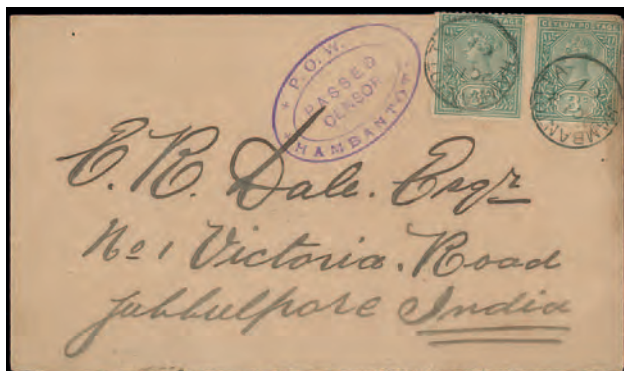 + P.O.W. +
PASSED
CENSOR
HAMBANTOT.
CEYLON POSTAGE
3
CEYLON POSTAGE
3
HAMBANTOTA
E. R. Dale. Esqr
No 1 Victoria. Road
Jubbulpore India